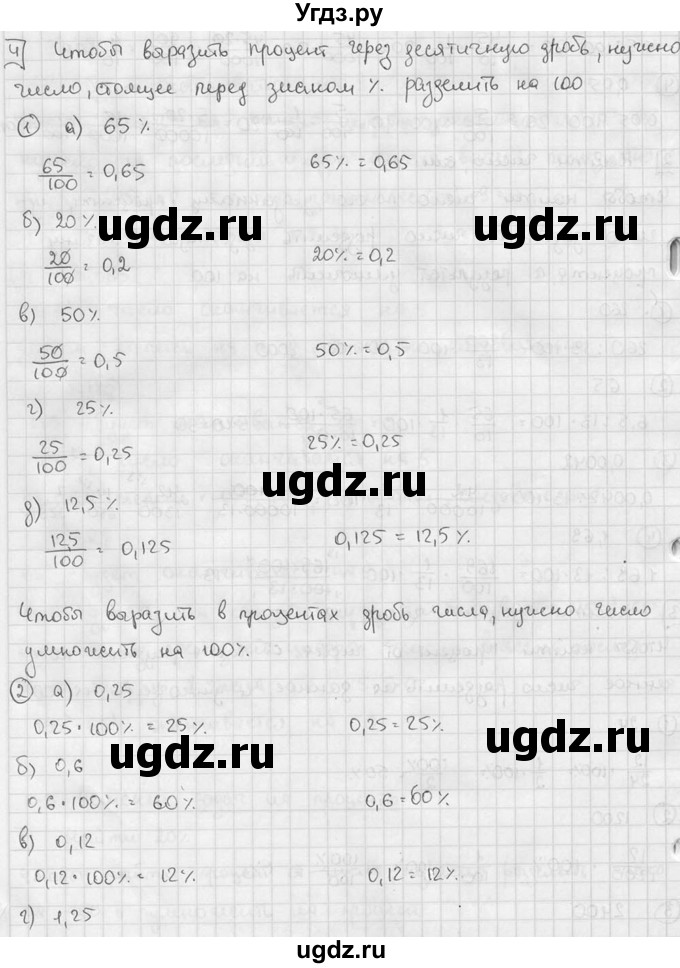 Угдз.ру
4) Чтобы выразить процент через десятичную дробь, нужно
число, стоящее перед знаком % разделить на 100
① а) 65%
65/100 = 0,65 65% = 0,65
ugdz.ru ugdz.ru
б) 20%
20/100 = 0,2 20% = 0,2
в) 50%
50/100 = 0,5 50% = 0,5
г) 25%
25/100 = 0,25 25% = 0,25
ugdz.ru ugdz.ru
д) 12,5%
12,5/100 = 0,125 0,125 = 12,5%
Чтобы выразить в процентах дробь числа, нужно число
умножить на 100%.
② а) 0,25
0,25 · 100% = 25% 0,25 = 25%
ugdz.ru ugdz.ru
б) 0,6
0,6 · 100% = 60% 0,6 = 60%
в) 0,12
0,12 · 100% = 12% 0,12 = 12%
г) 1,25
ugdz.ru